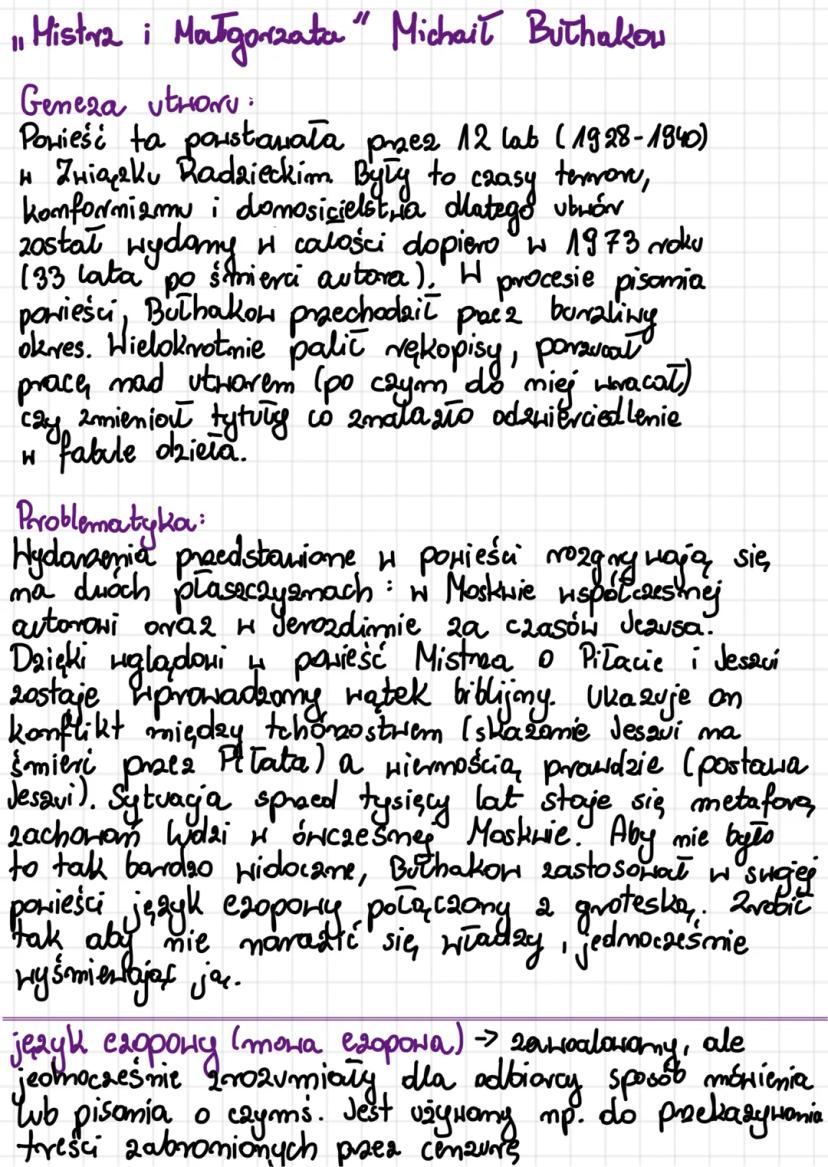 „Mistrz i Małgorzata" Michaił Bułhakow
Geneza utworu:
Powieść ta powstawała przez 12 lat (1928-1940)
w Związku Radzieckim. Były to czasy terroru,
konformizmu i donosicielstwa dlatego utwór
został wydany w całości dopiero w 1973 roku
(33 lata po śmierci autora). W procesie pisania
powieści, Bułhakow przechodził przez burzliwy
okres. Wielokrotnie palił rękopisy, porzucał
pracę nad utworem (po czym do niej wracał)
czy zmieniał tytuły co znalazło odzwierciedlenie
w fabule dzieła.
Problematyka:
Wydarzenia przedstawione w powieści rozgrywają się
na dwóch płaszczyznach: w Moskwie współczesnej
autorowi oraz w Jerozolimie za czasów Jezusa.
Dzięki wglądowi w powieść Mistrza o Piłacie i Jeszui
zostaje wprowadzony wątek biblijny. Ukazuje on
konflikt między tchórzostwem (skazanie Jeszui na
śmierć przez Piłata) a wiernością prawdzie (postawa
Jeszui). Sytuacja sprzed tysięcy lat staje się metaforą
zachowań ludzi w ówczesnej Moskwie. Aby nie było
to tak bardzo widoczne, Bułhakow zastosował w swojej
powieści język ezopowy połączony z groteską. Zrobił
tak aby nie narazić się władzy, jednocześnie
wyśmiewając ją.
język ezopowy (mowa ezopowa) → zawoalowany, ale
jednocześnie zrozumiały dla odbiorcy sposób mówienia
lub pisania o czymś. Jest używany np. do przekazywania
treści zabronionych przez cenzurę